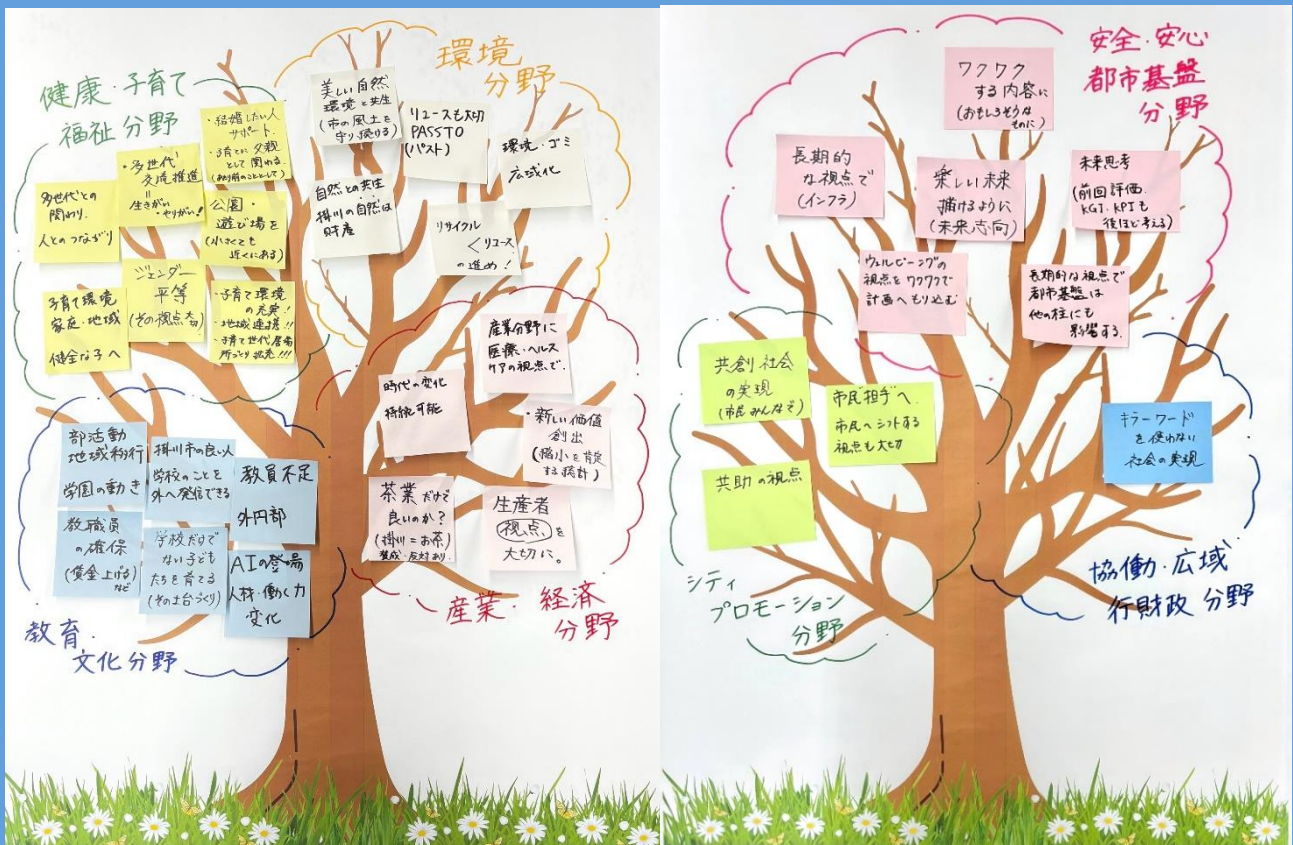 健康・子育て
福祉分野
・結婚したい人
サポート.
・子育てに父親
として関わる.
・多世代
交流推進
生きがい
やりがい!
多世代との
関わり.
人とのつながり
公園・
遊び場を
(小さくても
近くにある)
ジェンダー
平等
(その視点大切)
子育て環境
家庭・地域
健全な子へ
・子育て環境
の充実!
・地域連携!!
・子育て世代居場
所づくり拡充!!!
環境
分野
美しい自然
環境と共生
(市の風土を
守り続ける)
リユースも大切
PASSTO
(パスト)
環境・ゴミ
広域化
自然との共生
掛川の自然は
財産
リサイクル
<リユース
の進め!
産業分野に
医療・ヘルス
ケアの視点で.
時代の変化
持続可能
・新しい価値
創出
(縮小を肯定
する指針)
茶業だけで
良いのか?
(掛川=お茶)
賛成・反対あり.
生産者
視点を
大切に。
産業・経済
分野
部活動
地域移行
学園の動き
掛川市の良い人
学校のことを
外へ発信できる
教員不足
外円部
教職員
の確保
(賃金上げる)
など
学校だけで
ない子ども
たちを育てる
(その土台づくり)
AIの登場
人材・働く力
変化
教育・
文化分野
安全・安心
都市基盤
分野
ワクワク
する内容に
(おもしろそうな
ものに)
長期的
な視点で
(インフラ)
楽しい未来
描けるように
(未来志向)
未来思考
(前回評価.
KGI.KPIも
後ほど考える)
ウェルビーイングの
視点をワクワクで
計画へもり込む
長期的な視点で
都市基盤は
他の柱にも
影響する.
共創社会
の実現
(市民みんなで)
市民担手へ.
市民へシフトする
視点も大切
共助の視点
シティ
プロモーション
分野
キラーワード
を使わない
社会の実現
協働・広域
行財政分野